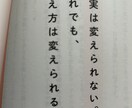 実は変えられない。
れでも、
え方は変えられる